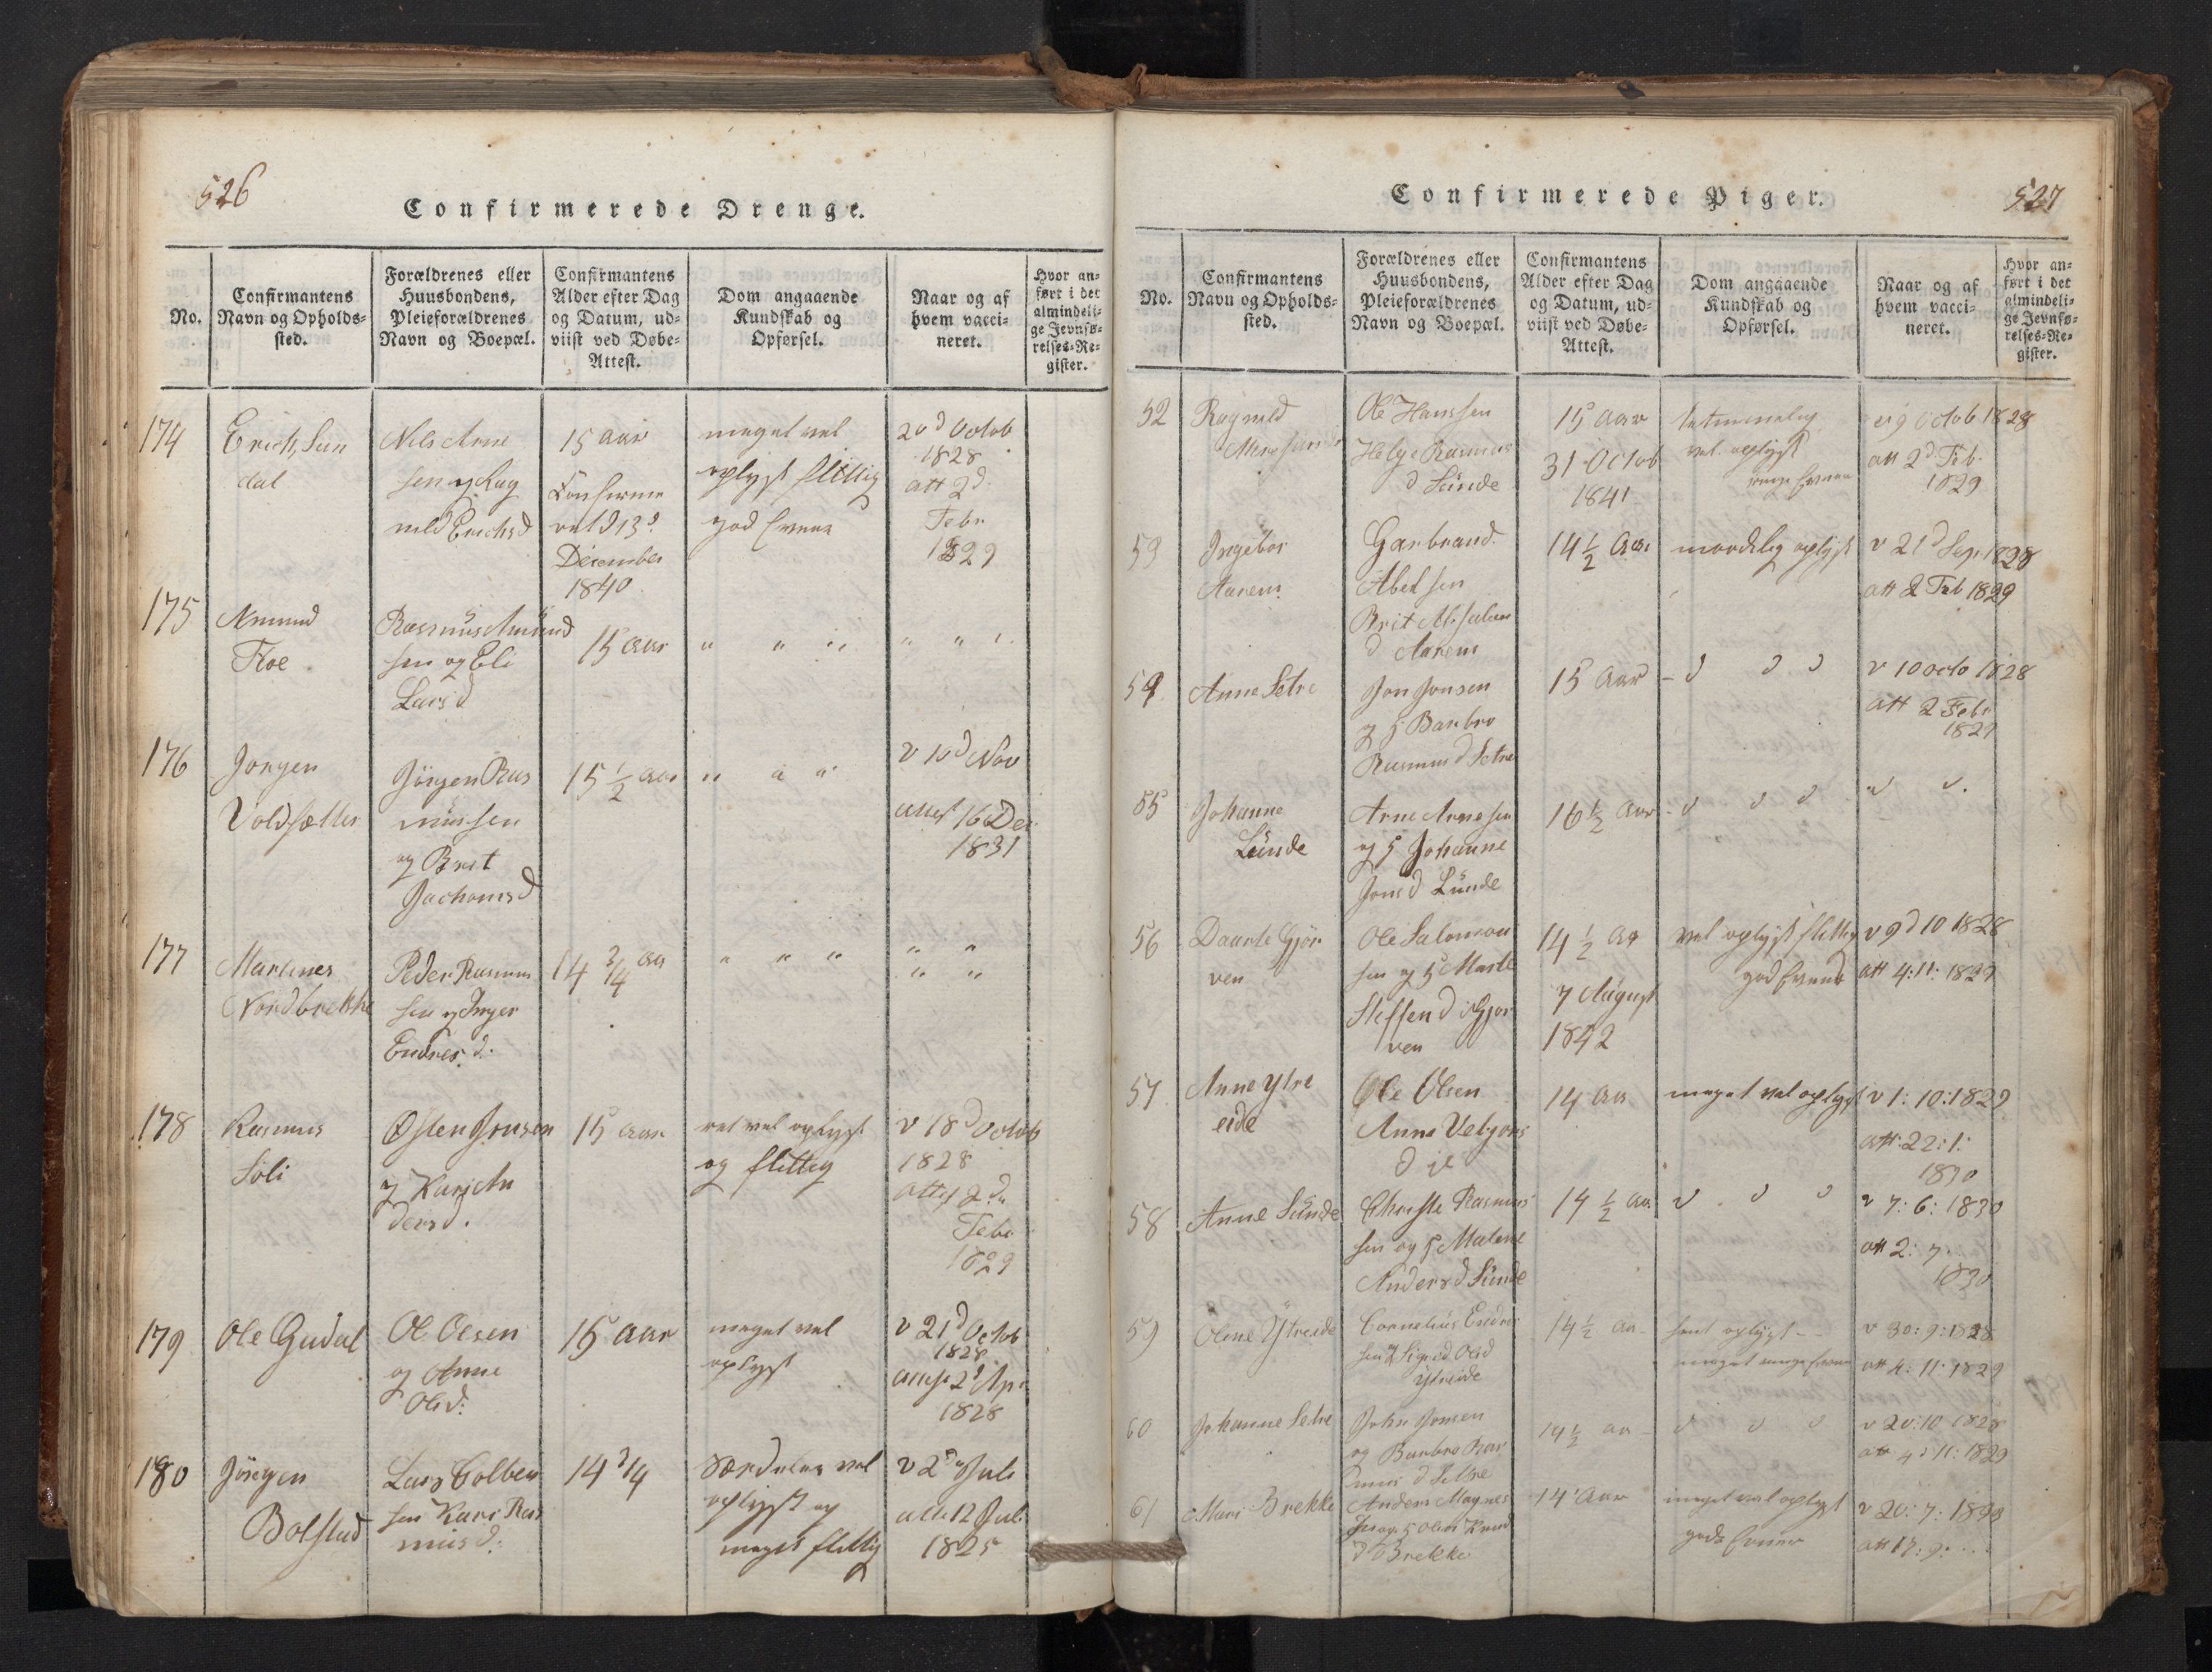 526
Confirmerede Drenge.
No.
Confirmantens
Navn og Opholds=
sted.
Forældrenes eller
Huusbondens,
Pleieforældrenes
Navn og Boepæl.
Confirmantens
Alder efter Dag
og Datum, ud=
viist ved Døbe=
Attest.
Dom angaaende
Kundskab og
Opførsel.
Naar og af
hvem vacci=
neret.
Hvor an=
ført i det
almindeli=
ge Jevnfø=
relses=Re=
gister.
174
Erich Sun
dal
Nils Arne
sen og Rag
nild Erichsd
15 aar
Confirme
ret d 13d
December
1840
meget vel
oplyst flittig
god Evner
20d Octob
1828
att 2d
Febr
1829
175
Amund
Floe
Rasmus Amund
sen og Eli
Larsd
15 aar
" " "
" " "
176
Jørgen
Voldsætter
Jørgen Ras
mussen
og Brit
Jachomsd
15 1/2 aar
" " "
v 10d Nov
attest 16 Dec
1831
177
Martines
Nordbrekke
Peder Rasmus
sen og Inger
Endresd:
14 3/4 aa
" " "
" "
" "
178
Rasmus
Soli
Østen Jonsen
og Kari An
dersd.
15 aar
ret vel oplyst
og flittig
v 18d Octob
1828
attest 2d
Febr
1829
179
Ole Gudal
Ole Olsen
og Anne
Olsd:
15 aar
meget vel
oplyst
v 21d Octob
1828
attest 2d Apr
1828
180
Jörgen
Bolstad
Lars Colben
sen Kari Ras
musd:
14 3/4
særdeles vel
oplyst og
meget flittig
v 2d Juli
att 12 Jul
1825
527
Confirmerede Piger.
No.
Confirmantens
Navn og Opholds=
sted.
Forældrenes eller
Huusbondens,
Pleieforældrenes
Navn og Boepæl.
Confirmantens
Alder efter Dag
og Datum, ud=
viist ved Døbe=
Attest.
Dom angaaende
Kundskab og
Opførsel.
Naar og af
hvem vacci=
neret.
Hvor an=
ført i det
almindeli=
ge Jevnfø=
relses=Re=
gister.
52
Ragnild
Ole Hanssen
Helge Rasmus
d Sunde
15 Aar
31 Octob
1841
vel oplyst
ringe Evner
v 9 Octob 1828
att 2d Feb.
1829
53
Ingebor
Aarem
Garbrand
Abelsen
Brit
d Aarem
14 1/2 Aar
maadelig oplyst
v 21d Sep 1828
att 2 Feb 1829
54
Anne Setre
Jon Jonsen
og H Barbro
Rasmusd Setre
15 Aar
d d d
v 10 octo 1828
att 2 Febr
1829
55
Johanne
Lunde
Arne Arnesen
og H Johanne
Jonsd Lunde
16 1/2 Aar
d d d
d d.
56
Daarte Gjör
ven
Ole Salomon
sen og H Marte
Steffensd Gjør
ven
14 1/2 Aar
7 August
1842
vel oplyst flittig
god Evner
v 9d 10 1828
att 4:11: 1829
57
Anne Ytre
eide
Ole Olsen
Anne Vebjørs
d
14 Aar
meget vel oplyst
v 1: 10: 1829
att: 22: 1:
1830
58
Anne Sunde
Christe Rasmus
sen og H Malene
Andersd Sunde
14 1/2 Aar
d d d
v 7: 6: 1830
att 2: 7
1830
59
Olene Ytreeide
Cornelius Endres
sen og Sigrid Olsd
Ytreeide
14 1/2 Aar
smt oplyst
meget ringe Evner
v 30: 9: 1828
att 4: 11: 1829
60
Johanne Setre
John Jonsen
og Barbro Ras
mus d Settre
14 1/2 aar
d d d
v 20:10 1828
att 4: 11: 1829
61
Mari Brekke
Anders Magnes
sen og H Oline Knud
d Brekke
14 Aar
meget vel oplyst
gode Evner
v 20: 7:
att 17: 9: